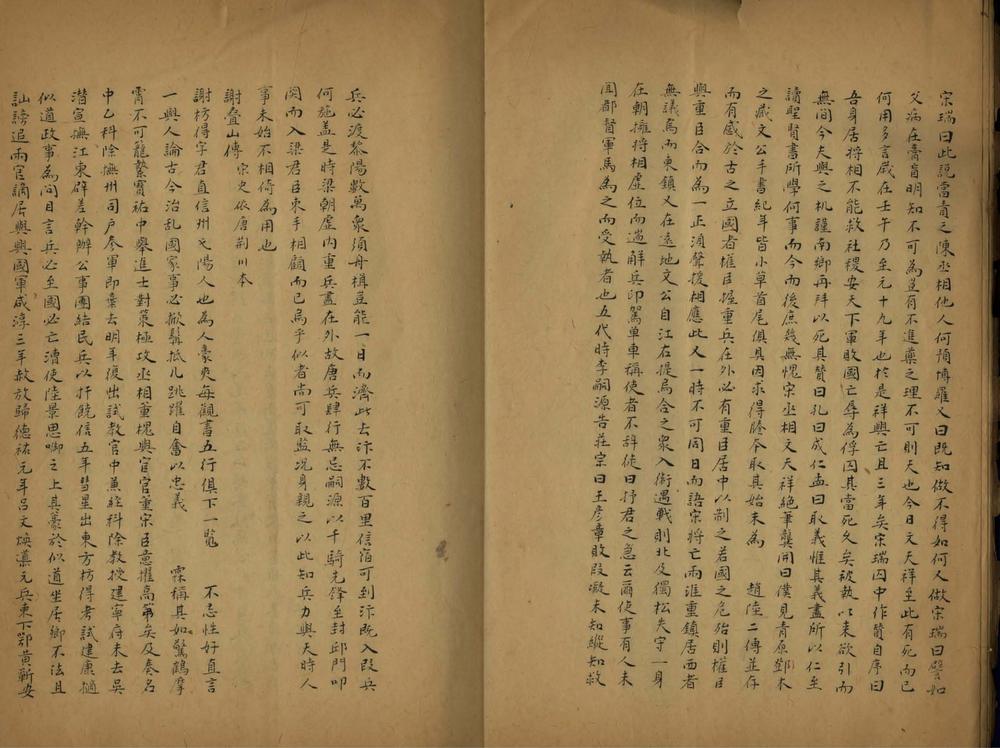 宋瑞曰此説當責之陳丞相他人何預博羅又曰既知做不得如何人做宋瑞曰譬如
父病在膏肓明知不可為豈有不進藥之理不可則天也今日文天祥至此有死而已
何用多言歲在壬午乃至元十九年也於是祥興亡且三年矣宋瑞囚中作贊自序曰
吾身居將相不能救社稷安天下軍敗國亡辱為俘囚其當死久矣被執以來欲引而
無間今天與之机謹南鄉再拜以死其贊曰孔曰成仁孟曰取義惟其義盡所以仁至
讀聖賢書所學何事而今而後庶幾無愧宋丞相文天祥絶筆龔開曰僕見青原鄧木
之藏文公手書紀年皆小草首尾俱具因求得謄本取其始末為 趙陸二傳並存
而有感於古之立國者權臣握重兵在外必有重臣居中以制之若國之危殆則權臣
與重臣合而為一正須聲援相應此又一時不可同日而語宋將亡兩淮重鎮居西者
無議焉而東鎮又在遠地文公自江右提烏合之衆入衛遇戰則北及獨松失守一身
在朝擁將相虛位而遄解兵印駕单車稱使者不辞徒曰抒君之急云爾使事有人未
聞都督軍馬為之而受執者也五代時李嗣源告莊宗曰王彦章敗段凝未知縱知救
兵必渡黎陽數萬衆須舟楫豈能一日而濟此去汴不數百里信宿可到汴既入段兵
何施盖是時梁朝虛内重兵盡在外故唐兵肆行無忌嗣源以千騎先鋒至封邱門叩
関而入梁君臣束手相顧而已烏乎似者尚可取监况身親之以此知兵力與天時人
事未始不相倚為用也
謝疊山傳 宋史依唐荆川本
謝枋得字君直信州弋陽人也為人豪爽每觀書五行俱下一覧 不忘性好直言
一與人論古今治乱國家事必掀髯抵几跳躍自奮以忠義 霖稱其如驚鶴摩
霄不可籠縶寶祐中舉進士對策極攻丞相董槐與宦官董宋臣意擢高第矣及奏名
中乙科除撫州司户叅軍即棄去明年復出試教官中兼経科除教授建寧府未去吳
潜宣撫江東辟差幹辦公事團結民兵以扞饒信五年彗星出東方枋得考試建康擿
似道政事為问目言兵必至國必亡漕使陸景思啣之上其藁於似道坐居鄉不法且
訕謗追兩官謫居興國軍咸淳三年赦放歸德祐元年吕文焕導元兵東下鄂黄蘄安